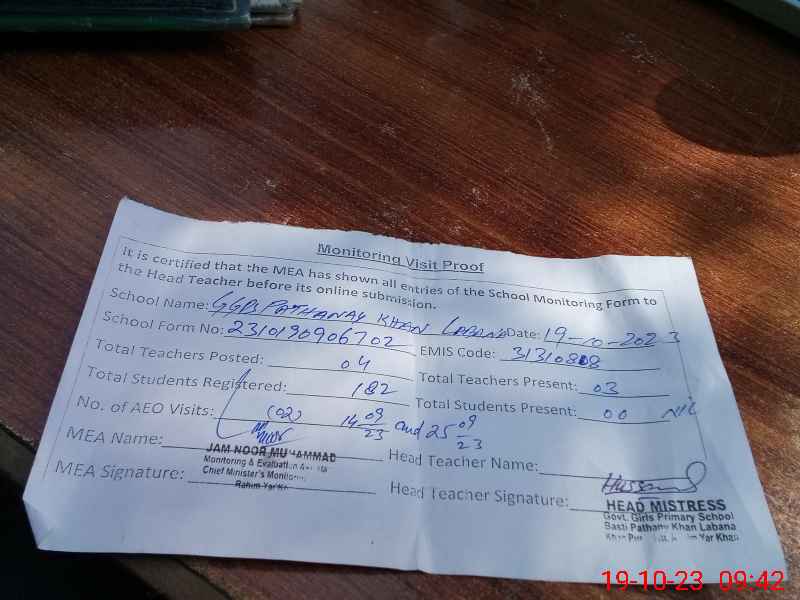 Monitoring Visit Proof
It is certified that the MEA has shown all entries of the School Monitoring Form to
the Head Teacher before its online submission.
School Name: GGPS PATHANAY KHAN LABANA Date: 19-10-2023
School Form No: 2310190906702 EMIS Code: 31310808
Total Teachers Posted: 04 Total Teachers Present: 03
Total Students Registered: 182 Total Students Present: 00 NIL
No. of AEO Visits: (02) 14 09/23 and 25 09/23
MEA Name: Head Teacher Name:
JAM NOOR MUHAMMAD
Monitoring & Evaluation
Chief Minister's
Rahim Yar
MEA Signature: Head Teacher Signature:
HEAD MISTRESS
Govt. Girls Primary School
Basti Pathany Khan Labana
Yar Khan
19-10-23 09:42